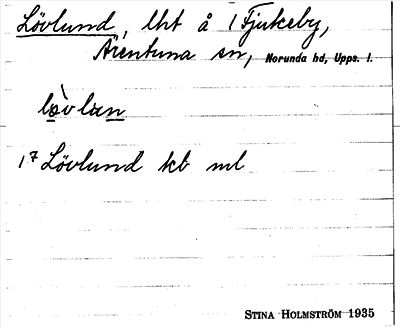 Lövlund, lht å 1 Fjukeby,
Ärentuna sn, Norunda hd, Upps. l.
lö̀vlan
17 Lövlund kb ml
STINA HOLMSTRÖM 1935